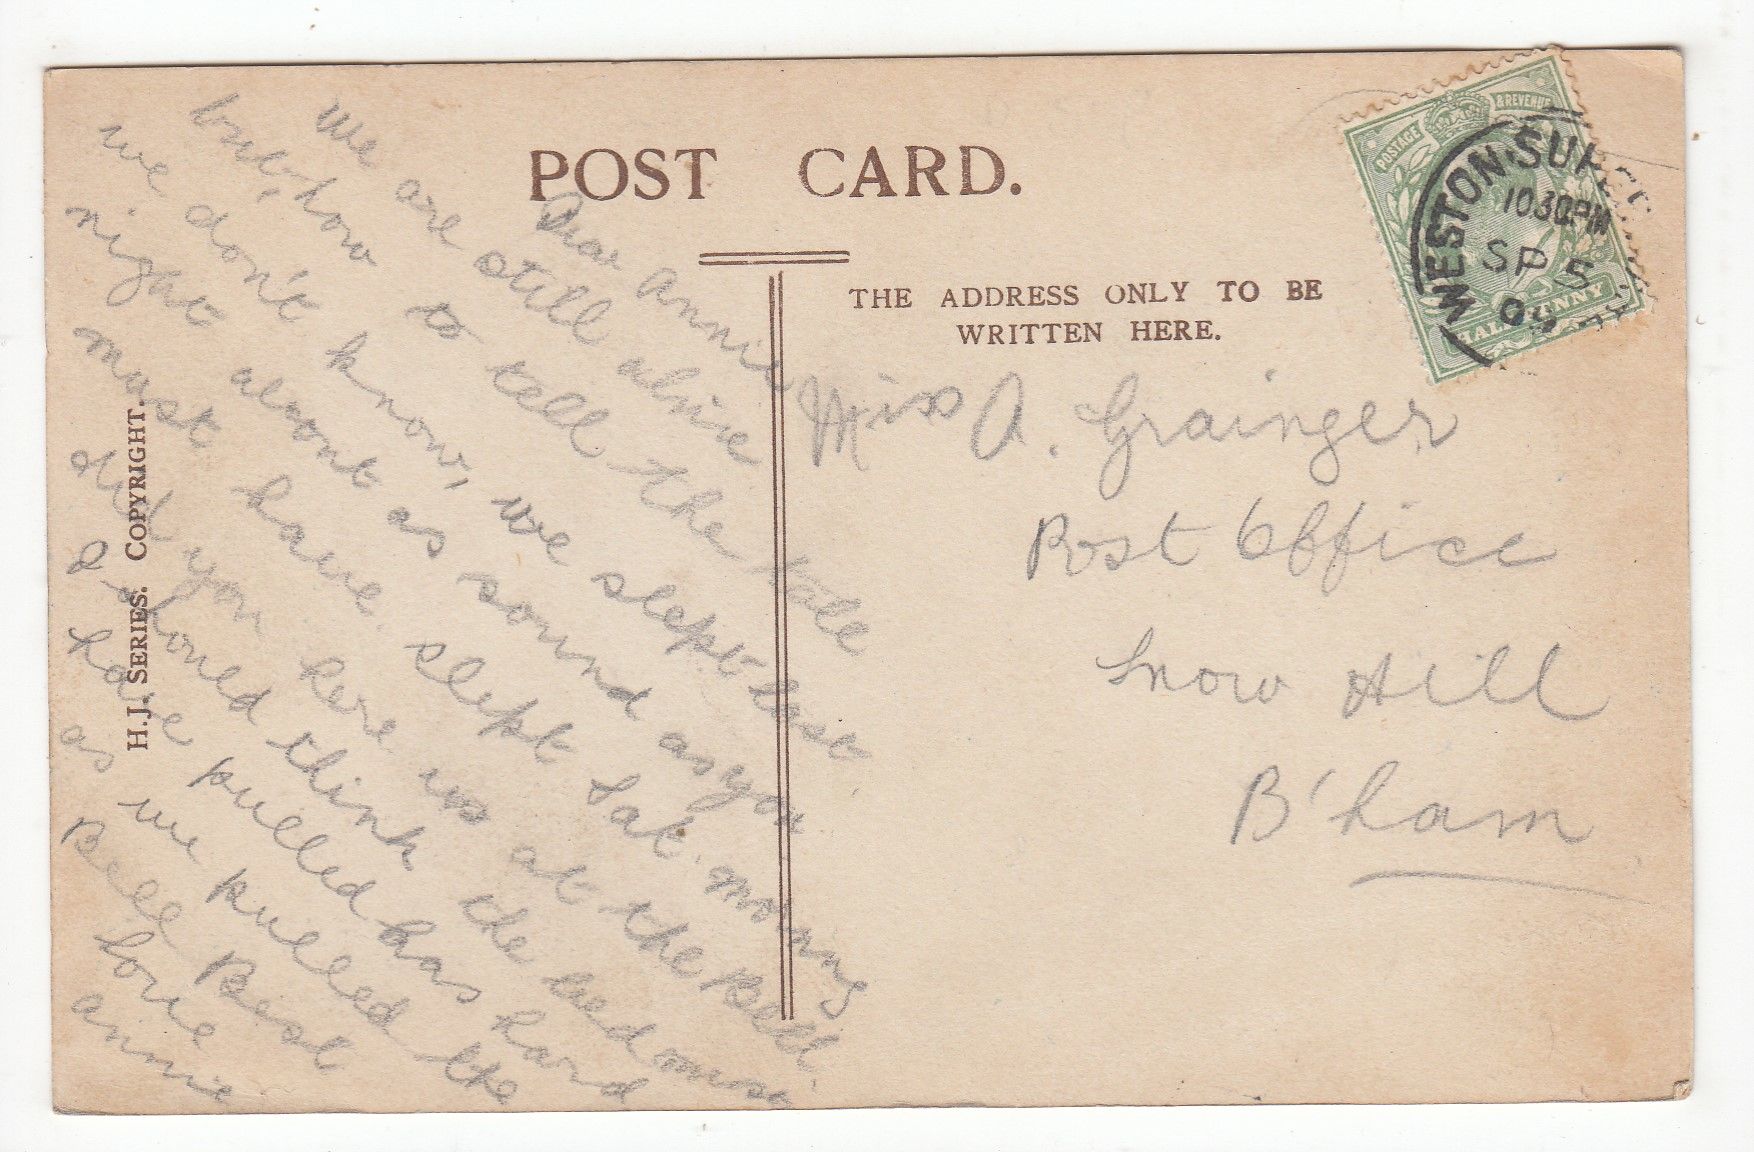 POST CARD.
THE ADDRESS ONLY TO BE
WRITTEN HERE.
H.J. SERIES. COPYRIGHT.
POSTAGE & REVENUE
HALFPENNY
WESTON-SUPER
10 30 PM
SP 5
09
Miss A. Grainger
Post Office
Snow Hill
B'ham
Dear Annie
We are still alive
but, how to tell the tale
we don't know, we slept last
night about as sound as you
must have slept Sat. morning
did you hear us at the Bell.
I should think the bed must
have pulled has hard
as we pulled the
Bell Best
love
Annie